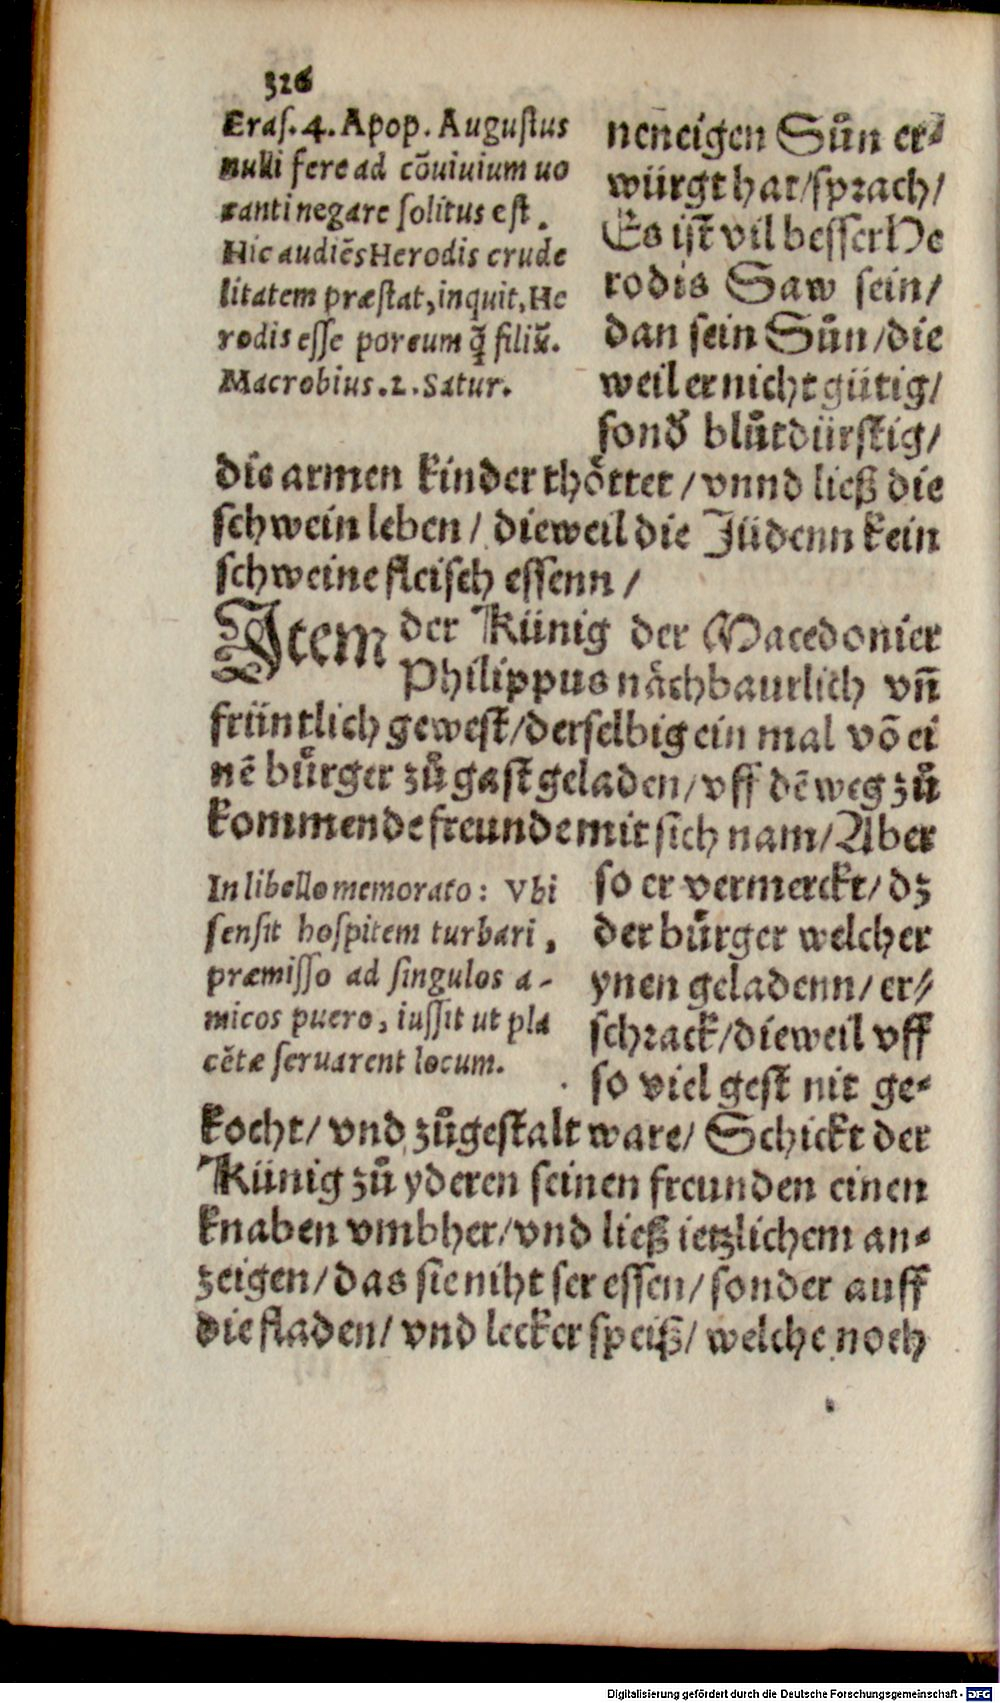 326
Eraſ. 4. Apop. Auguſtus
nulli fere ad cõuiuium uo
canti negare ſolitus eſt.
Hic audiẽs Herodis crude
litatem præſtat, inquit, He
rodis eſſe porcum ꝗ̃ filiũ.
Macrobius. 2. Satur.
neneigen Sůn er⸗
würgt hat/ſprach/
Es iſt vil beſſer He
rodis Saw ſein/
dan ſein Sůn/die
weil er nicht gütig/
ſond̕ blůtdürſtig/
die armen kinder thöttet/vnnd ließ die
ſchwein leben/ dieweil die Jüdenn kein
ſchweine fleiſch eſſenn/
Item der Künig der Macedonier
Philippus nächbaurlich vñ
früntlich geweſt/derſelbig ein mal võ ei
nẽ bůrger zů gaſt geladen/vff dẽ weg zů
kommende freunde mit ſich nam/Aber
In libello memorato: Vbi
ſenſit hoſpitem turbari,
præmiſſo ad ſingulos a-
micos puero, iuſſit ut pla
cẽtæ ſeruarent locum.
ſo er vermerckt/dz
der bůrger welcher
ynen geladenn/er⸗
ſchrack/dieweil vff
ſo viel geſt nit ge⸗
kocht/ vnd zůgeſtalt ware/ Schickt der
Künig zů yderen ſeinen freunden einen
knaben vmbher/vnd ließ ietzlichem an⸗
zeigen/das ſie niht ſer eſſen/ſonder auff
die fladen/ vnd lecker ſpeiß/ welche noch
Digitalisierung gefördert durch die Deutsche Forschungsgemeinschaft - DFG